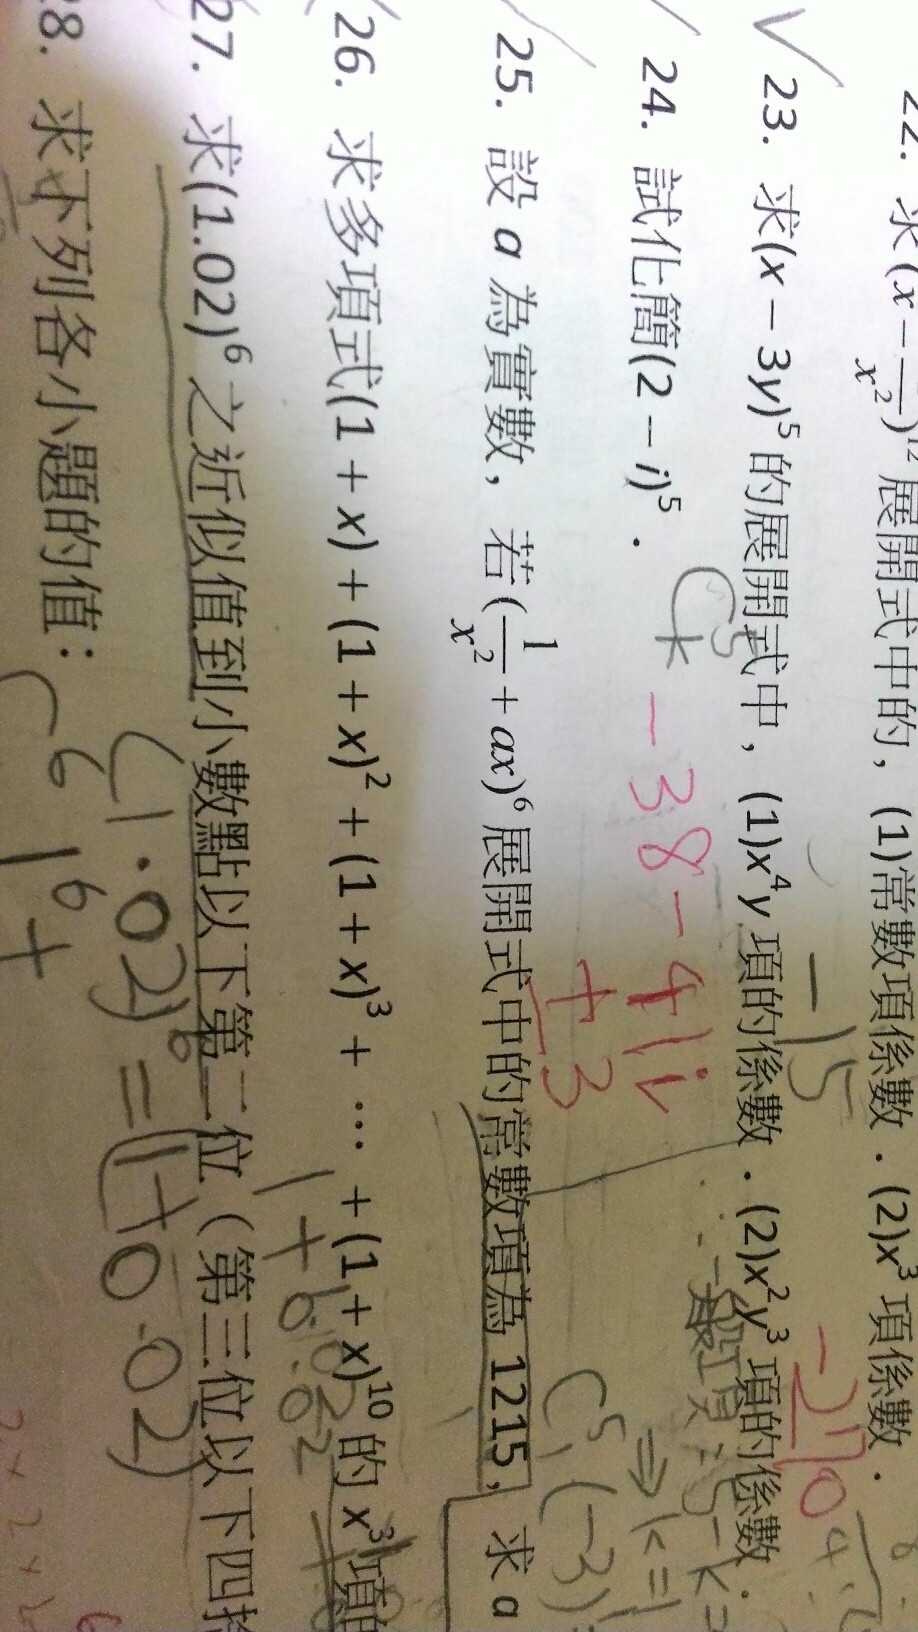 22. 求(x − —/x²)¹² 展開式中的，(1)常數項係數．(2)x³ 項係數．
−15
−270
23. 求(x − 3y)⁵ 的展開式中，(1)x⁴y 項的係數．(2)x²y³ 項的係數．
24. 試化簡(2 − i)⁵．
−38−41i
一般項：
⇒ k=1
±3
C⁵₁(−3)
25. 設 a 為實數，若(1/x² + ax)⁶ 展開式中的常數項為 1215，求 a
26. 求多項式(1 + x) + (1 + x)² + (1 + x)³ + ⋯ + (1 + x)¹⁰ 的 x³ 項的
27. 求(1.02)⁶ 之近似值到小數點以下第二位（第三位以下四捨
(1.02)⁶ = (1+0.02)
28. 求下列各小題的值：